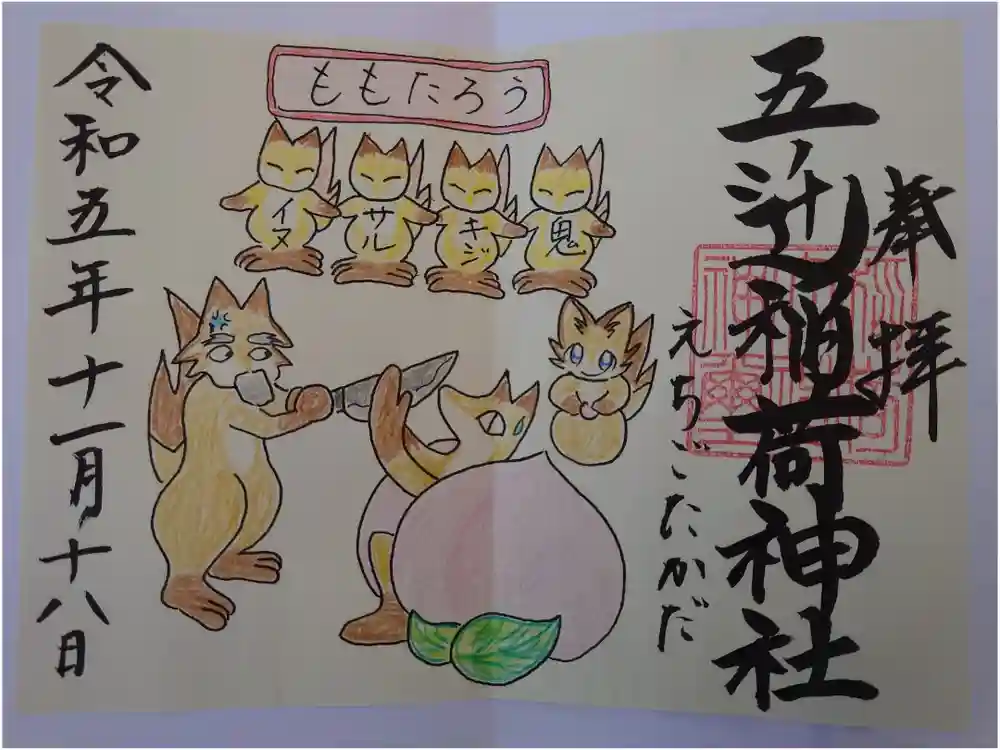 奉拝
五辻稲荷神社
えちごたかだ
ももたろう
イヌ
サル
キジ
鬼
令和五年十一月十八日